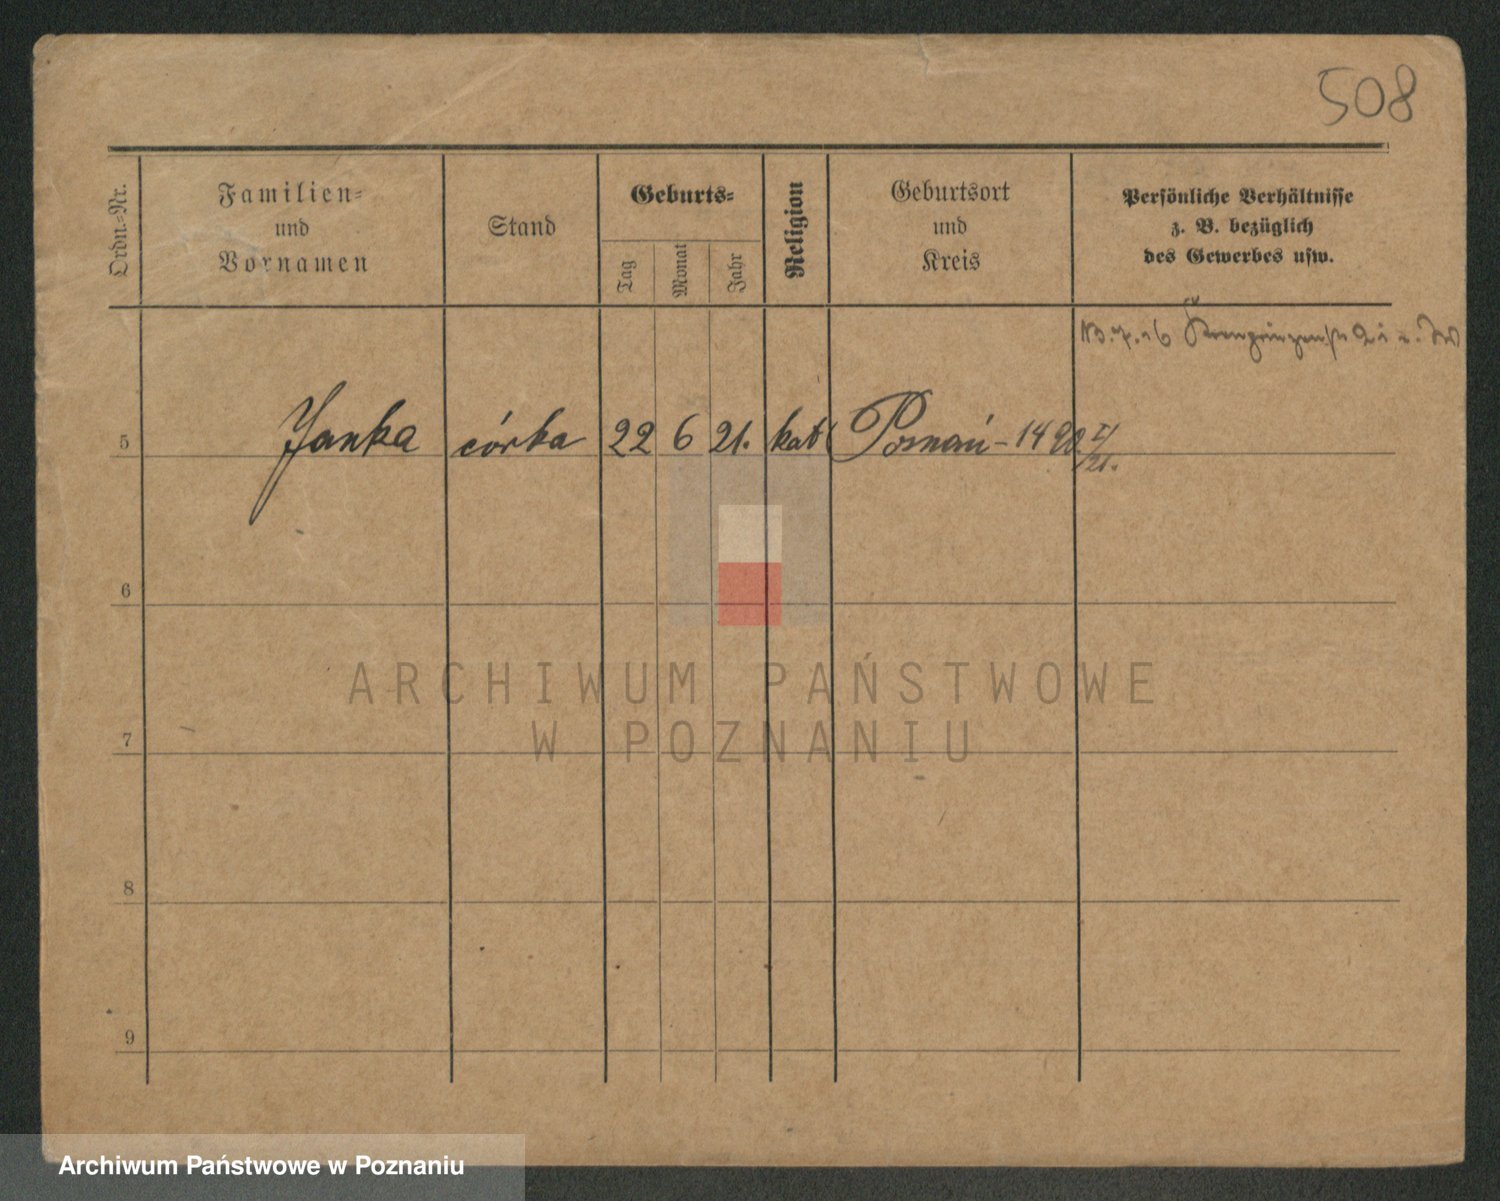 508
Ordn.-Nr.
Familien-
und
Vornamen
Stand
Geburts-
Tag
Monat
Jahr
Religion
Geburtsort
und
Kreis
Persönliche Verhältnisse
z. B. bezüglich
des Gewerbes usw.
5 Janka córka 22 6 21. kat Poznań - 1490 I/21.
6
7
8
9
ARCHIWUM PAŃSTWOWE
W POZNANIU
Archiwum Państwowe w Poznaniu